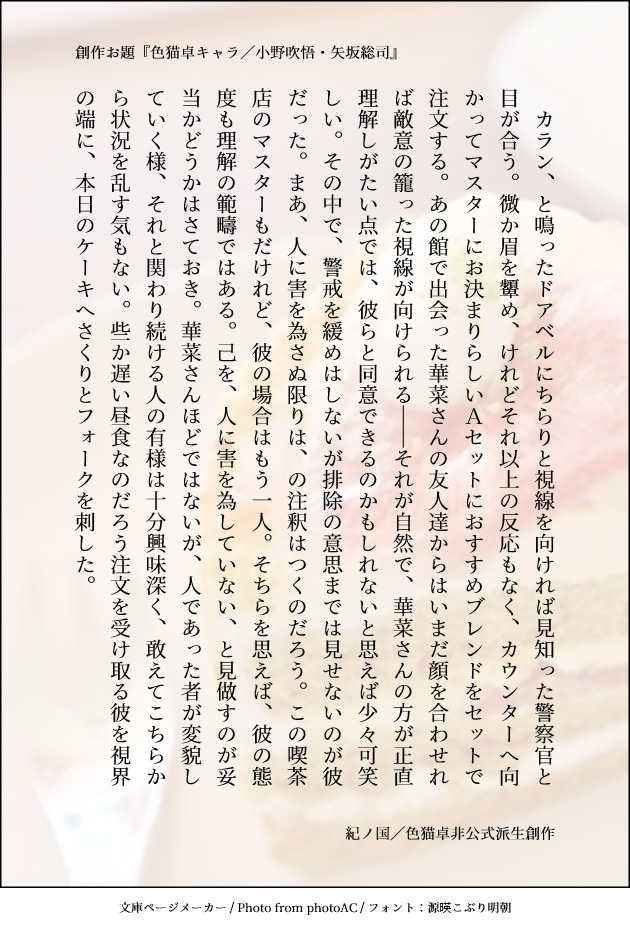 創作お題『色猫卓キャラ／小野吹悟・矢坂総司』
　カラン、と鳴ったドアベルにちらりと視線を向ければ見知った警察官と
目が合う。微か眉を顰め、けれどそれ以上の反応もなく、カウンターへ向
かってマスターにお決まりらしいＡセットにおすすめブレンドをセットで
注文する。あの館で出会った華菜さんの友人達からはいまだ顔を合わせれ
ば敵意の籠った視線が向けられる――それが自然で、華菜さんの方が正直
理解しがたい点では、彼らと同意できるのかもしれないと思えば少々可笑
しい。その中で、警戒を緩めはしないが排除の意思までは見せないのが彼
だった。まあ、人に害を為さぬ限りは、の注釈はつくのだろう。この喫茶
店のマスターもだけれど、彼の場合はもう一人。そちらを思えば、彼の態
度も理解の範疇ではある。己を、人に害を為していない、と見做すのが妥
当かどうかはさておき。華菜さんほどではないが、人であった者が変貌し
ていく様、それと関わり続ける人の有様は十分興味深く、敢えてこちらか
ら状況を乱す気もない。些か遅い昼食なのだろう注文を受け取る彼を視界
の端に、本日のケーキへさくりとフォークを刺した。
紀ノ国／色猫卓非公式派生創作
文庫ページメーカー / Photo from photoAC / フォント：源暎こぶり明朝